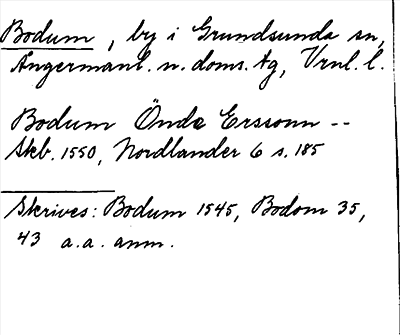 Bodum, by i Grundsunda sn,
Ångermanl. n. doms. tg, Vrnl. l.
Bodum Önde Erssonn --
Skb. 1550, Nordlander 6 s. 185
Skrives: Bodum 1545, Bodom 35,
43 a.a. anm.